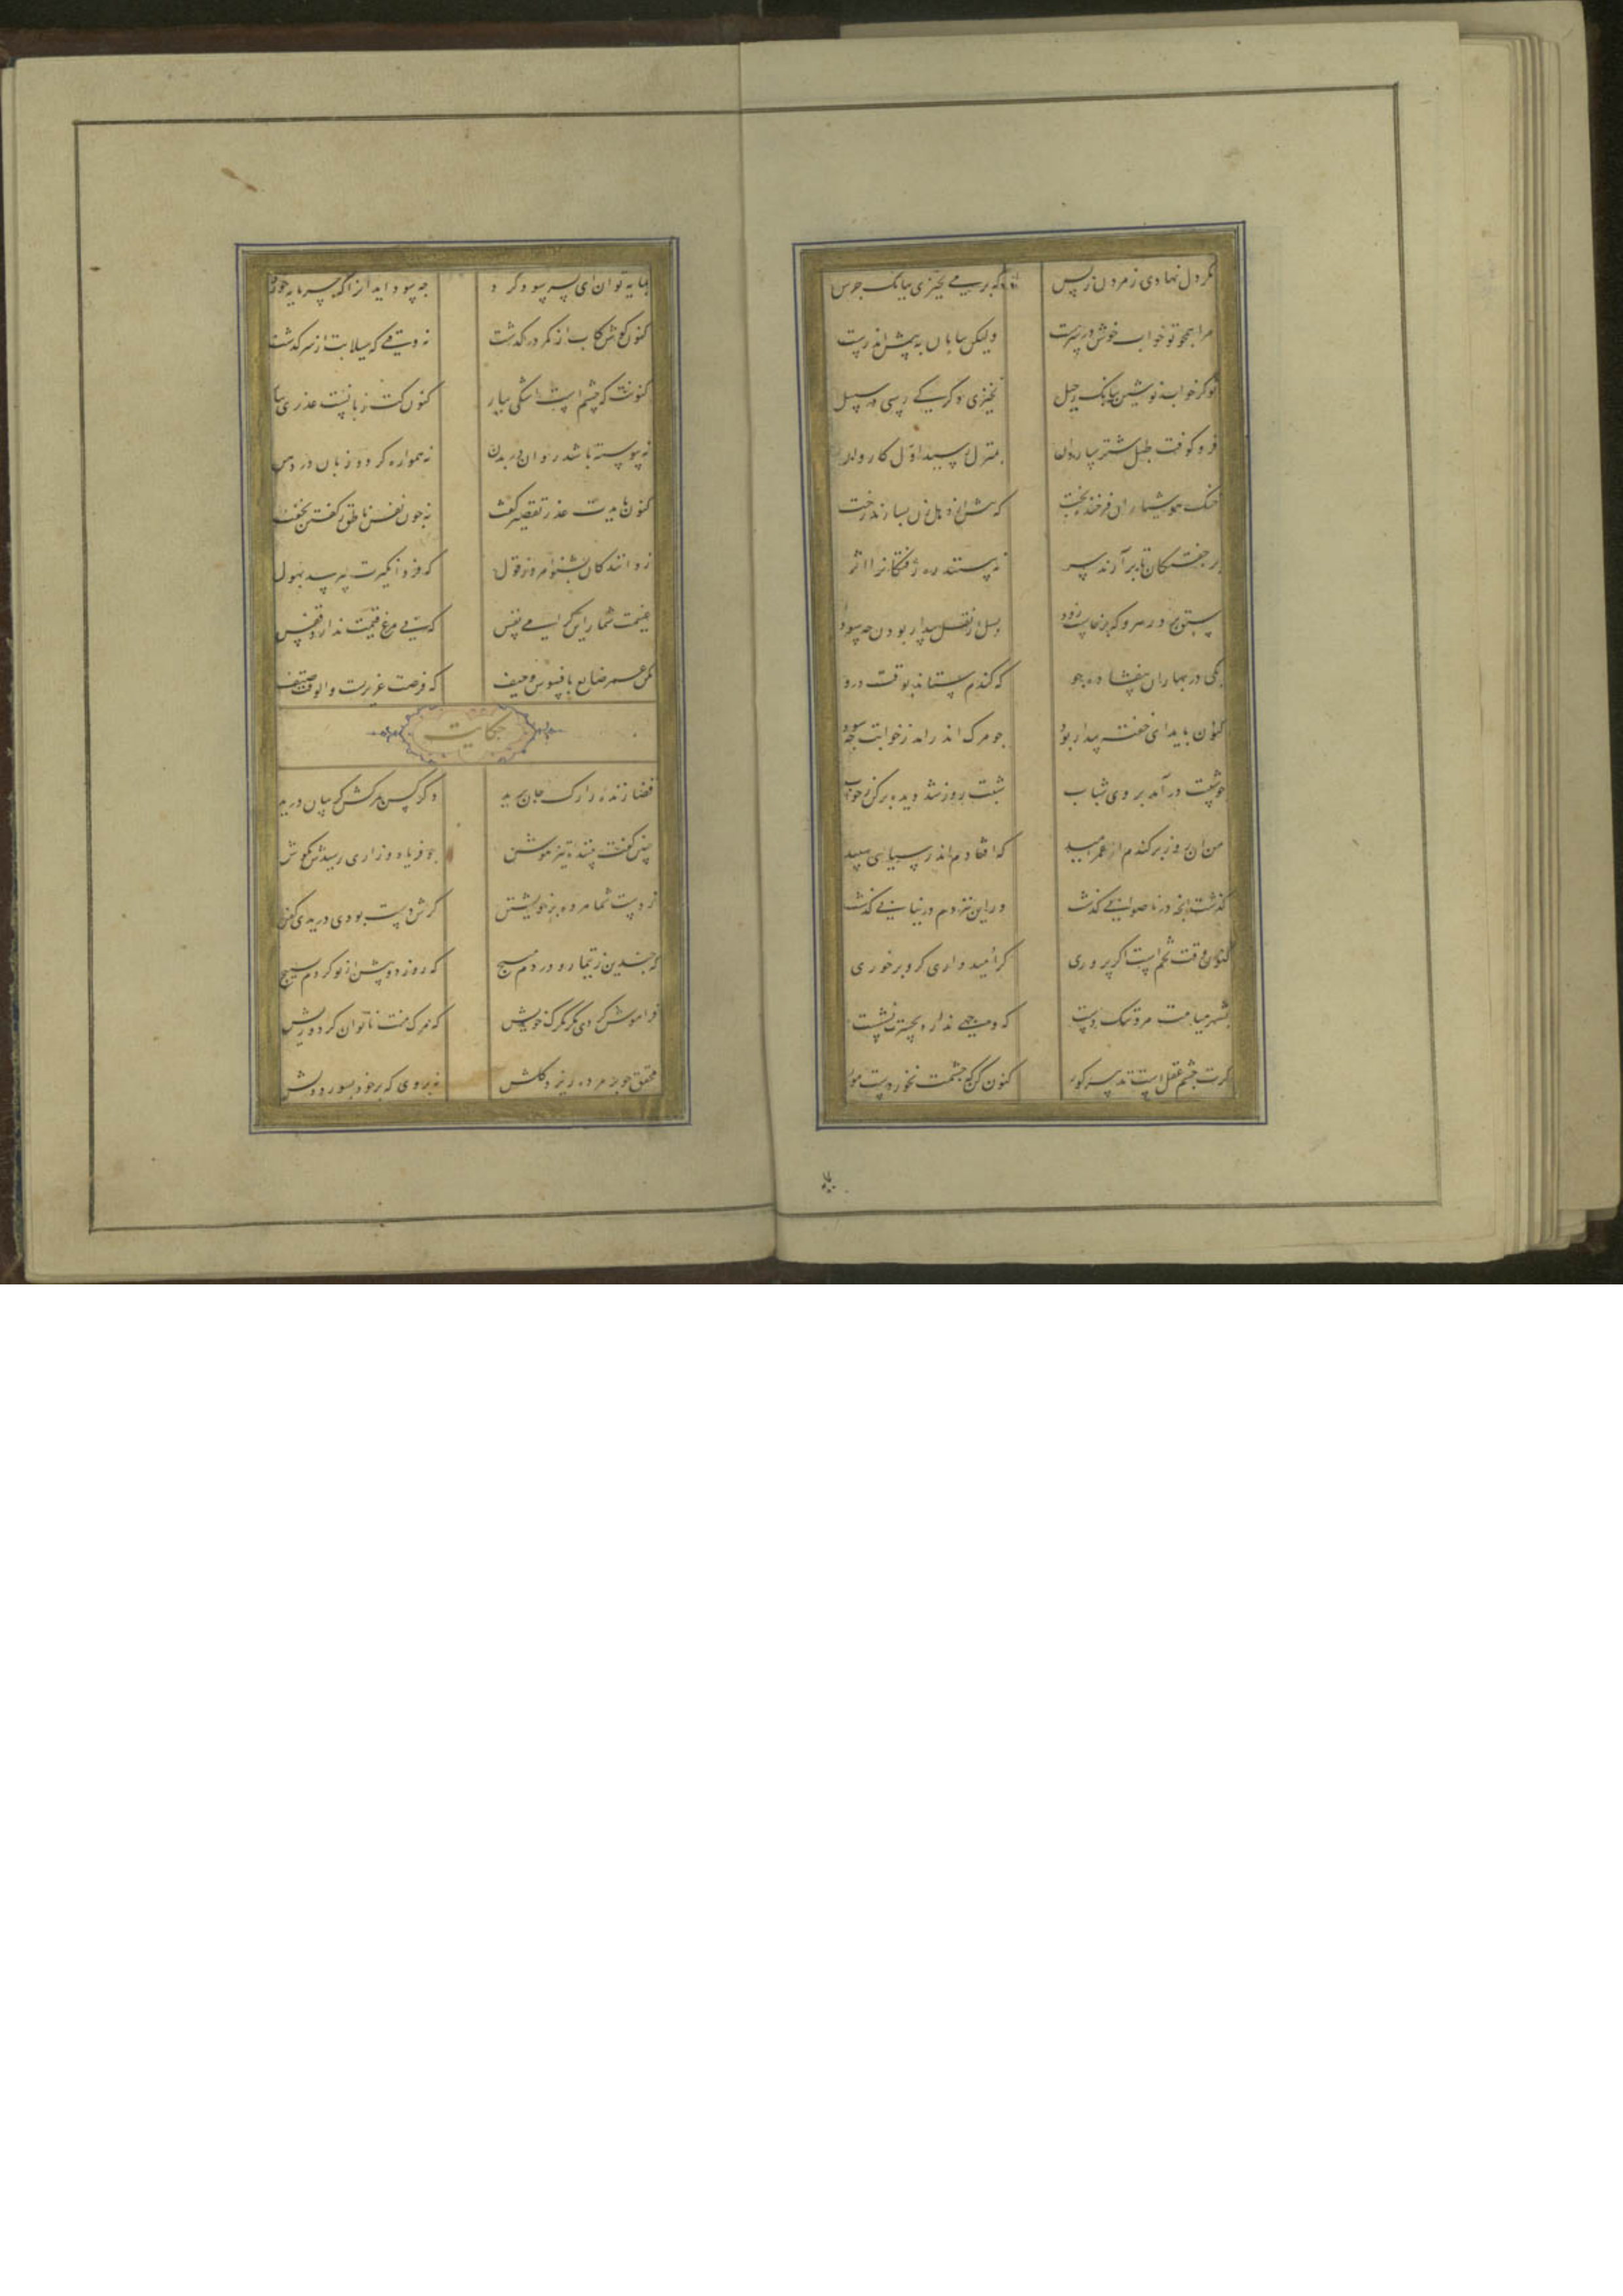 مکر دل نهادی ز مردن ز پس که بر می نخیزی ببانک جرس
مرا همچو تو خواب خوش در سرست ولیکن بیابان به پیش اندرست
تو کز خواب نوشین ببانک رحیل نخیزی دکر کی رسی در سبیل
فرو کوفت طبل شتر ساروان بمنزل رسید اول کاروان
خنک هوشیاران فرخنده بخت که پیش از دهل زن بسازند رخت
بره خفتکان تا برآرند سر نه بینند ره رفتکانرا اثر
سبق برد رهرو که برخاست زود پس از نقل بیدار بودن چه سود
یکی در بهاران بیفشانده جو که کندم ستاند بوقت درو
کنون باید ای خفته بیدار بود چو مرک اندر آید ز خوابت چه سود
چو شیبت درآمد بروی شباب شبت روز شد دیده برکن ز خواب
من آن روز برکندم از عمر امید که افتادم اندر سیاهی سپید
کذشت آنچه در ناصوابی کذشت ور این نیز هم در نیابی کذشت
کنون وقت تخم است اکر پروری کر امیدواری که بر خوری
بشهر قیامت مرو تنکدست که وجهی ندارد بحسرت نشست
کرت چشم عقل است تدبیر کور کنون کن که چشمت نخوردست مور
بمایه توان ای پسر سود کرد چه سود آید آنرا که سرمایه خورد
کنون کوش کاب از کمر درکذشت نه وقتی که سیلابت از سر کذشت
کنونت که چشم است اشکی ببار کنون کت زبانست عذری بیار
نه پیوسته باشد روان در بدن نه همواره کردد زبان در دهن
کنون بایدت عذر تقصیر کفت نه چون نفس ناطق ز کفتن بخفت
ز دانندکان بشنو امروز قول که فردا نکیرت بپرسد بهول
غنیمت شمار این کرامی نفس که بی مرغ قیمت ندارد قفس
مکن عمر ضایع بافسوس و حیف که فرصت عزیزست و الوقت سیف
حکایت
قضا زنده را رک جان برید دکر کس بمرکش کریبان درید
چنین کفت بیننده تیز هوش چو فریاد و زاری رسیدش بکوش
ز دست شما مرده بر خویشتن کرش دست بودی دریدی کفن
که چندین ز تیمار و دردم مپیچ که روزی دو پیش از تو کردم بسیج
فراموش کردی مکر مرک خویش که مرک منت ناتوان کرد و ریش
محقق چو بر مرده ریزد کلش نه بر وی که بر خود بسوزد دلش